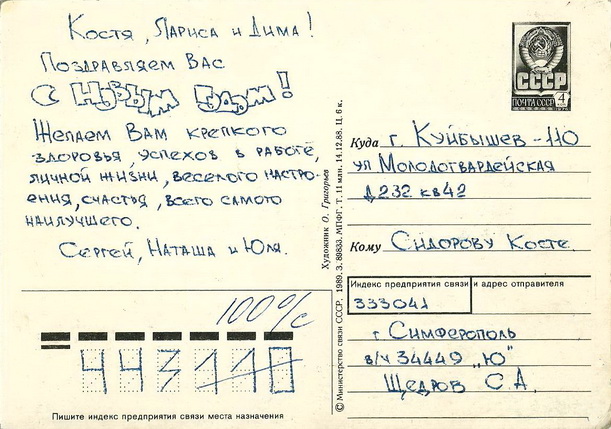 Костя, Лариса и Дима!
Поздравляем Вас
С Новым Годом!
Желаем Вам крепкого
здоровья, успехов в работе,
личной жизни, веселого настро-
ения, счастья, всего самого
наилучшего.
Сергей, Наташа и Юля.
100%
443110
Пишите индекс предприятия связи места назначения
© Министерство связи СССР. 1989. З. 89833. МПФГ. Т. 11 млн. 14.12.88. Ц. 6 к.
Художник О. Григорьев
СССР
ПОЧТА СССР 4
Куда г. Куйбышев-110
ул Молодогвардейская
д 232 кв 42
Кому Сидорову Косте.
Индекс предприятия связи и адрес отправителя
333041
г Симферополь
в/ч 34449 „Ю"
Щедров С.А.